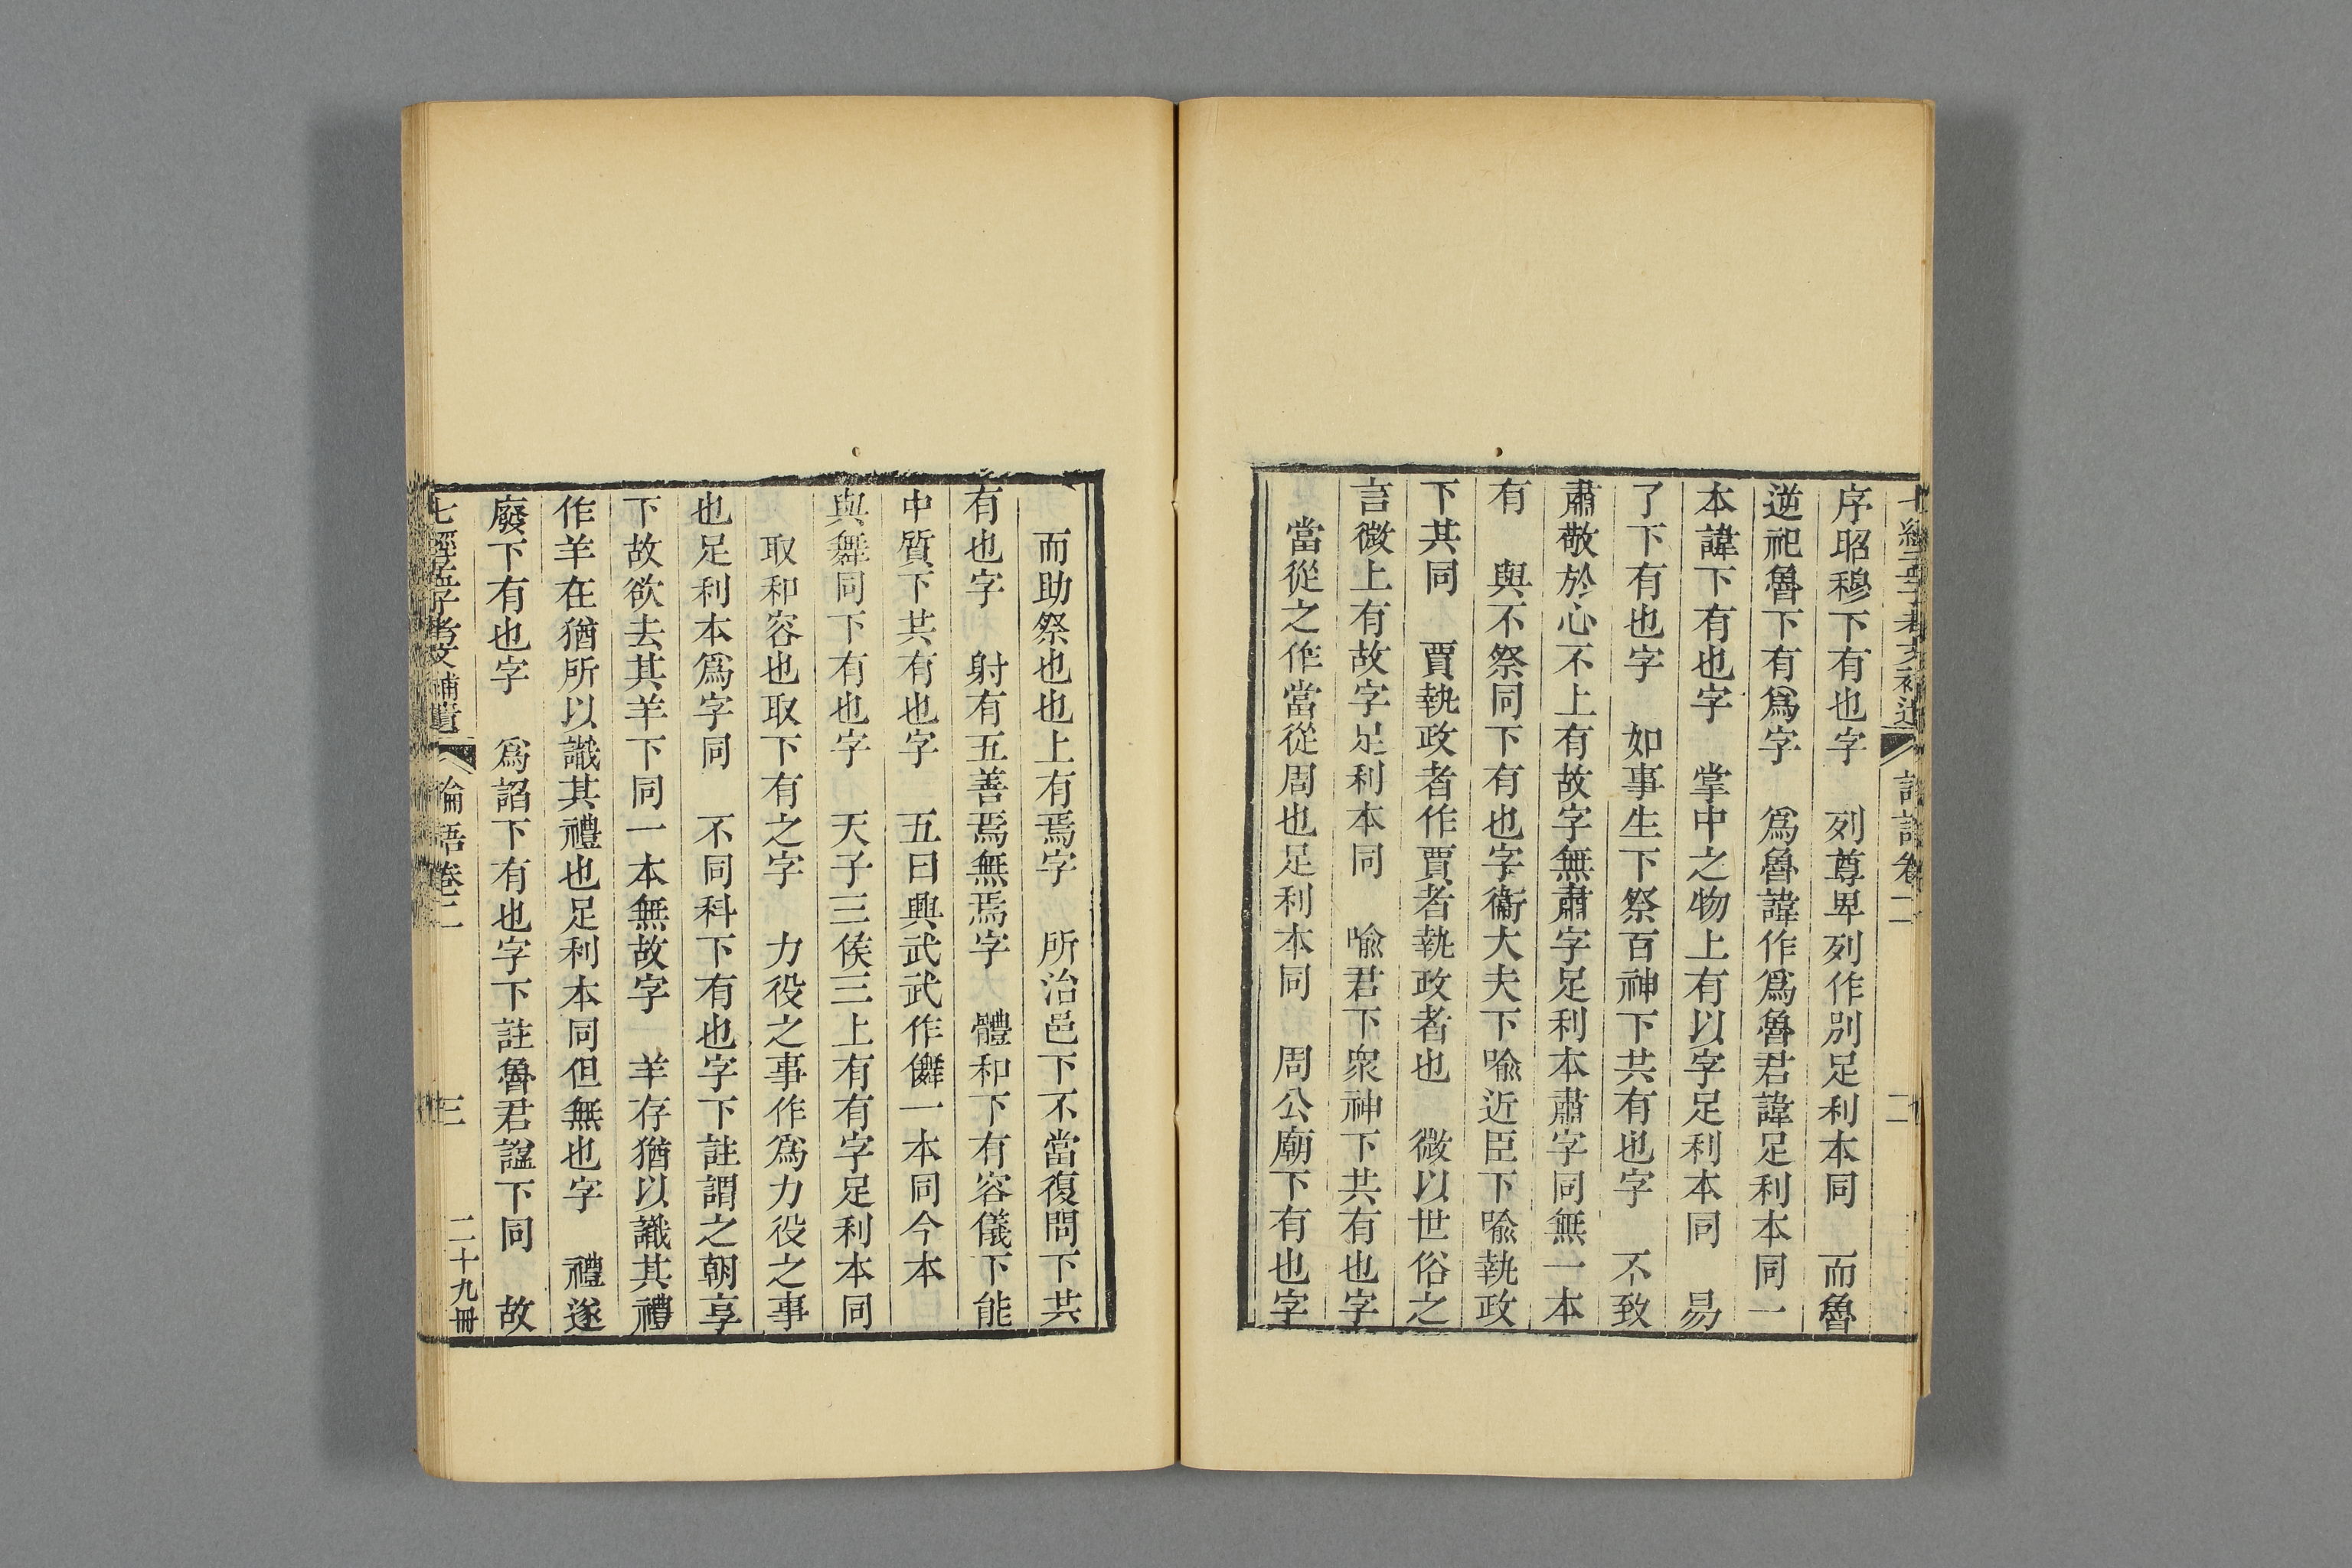 序昭穆下有也字　列尊卑列作別足利本同　而魯
逆祀魯下有爲字　爲魯諱作爲魯君諱足利本同一
本諱下有也字　掌中之物上有以字足利本同　易
了下有也字　如事生下祭百神下共有也字　不致
肅敬於心不上有故字無肅字足利本肅字同無一本
有　與不祭同下有也字衞大夫下喻近臣下喻執政
下共同　賈執政者作賈者執政者也　微以世俗之
言微上有故字足利本同　喻君下衆神下共有也字
當從之作當從周也足利本同　周公廟下有也字
而助祭也也上有焉字　所治邑下不當復問下共
有也字　射有五善焉無焉字　體和下有容儀下能
中質下共有也字　五曰興武武作儛一本同今本
與舞同下有也字　天子三侯三上有有字足利本同
取和容也取下有之字　力役之事作爲力役之事
也足利本爲字同　不同科下有也字下註謂之朝享
下故欲去其羊下同一本無故字　羊存猶以識其禮
作羊在猶所以識其禮也足利本同但無也字　禮遂
廢下有也字　爲諂下有也字下註魯君諡下同　故
七經孟子考文補遺　論語卷二　三　二十九冊